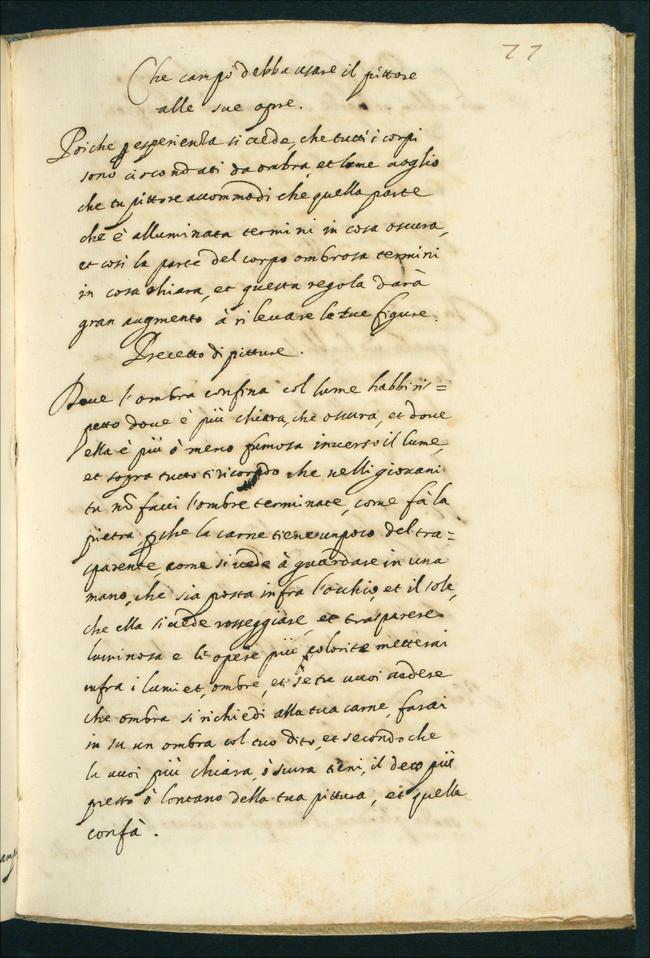 77
Che campo debba usare il pittore
alle sue opre.
Poiche p esperienza si uede, che tutti i corpi
sono circondati da ombra, et lume uoglio
che tu pittore accommodi che quella parte
che è alluminata termini in cosa oscura,
et così la parte del corpo ombrosa termini
in cosa chiara, et questa regola darà
gran augmento à rileuare le tue figure.
Precetto di pitture.
Doue l'ombra confina col lume habbi ris=
petto doue è più chiara, che oscura, et doue
ella è più ò meno fumosa inuerso il lume,
et sopra tutto ti ricordo che nelli giouani
tu nõ facci l'ombre terminate, come fà la
pietra, pche la carne tiene un poco del tra=
sparente, come si uede à guardare in una
mano, che sia posta infra l'occhio, et il sole,
che ella si uede rosseggiare, et trasparere
luminosa e le opere più colorite metterai
infra i lumi et, ombre, et se tu uuoi uedere
che ombra si richiedi alla tua carne, farai
in su un ombra col tuo dito, et secondo che
la uuoi più chiara, ò scura tieni, il deto più
presso ò lontano della tua pittura, et quella
confà.